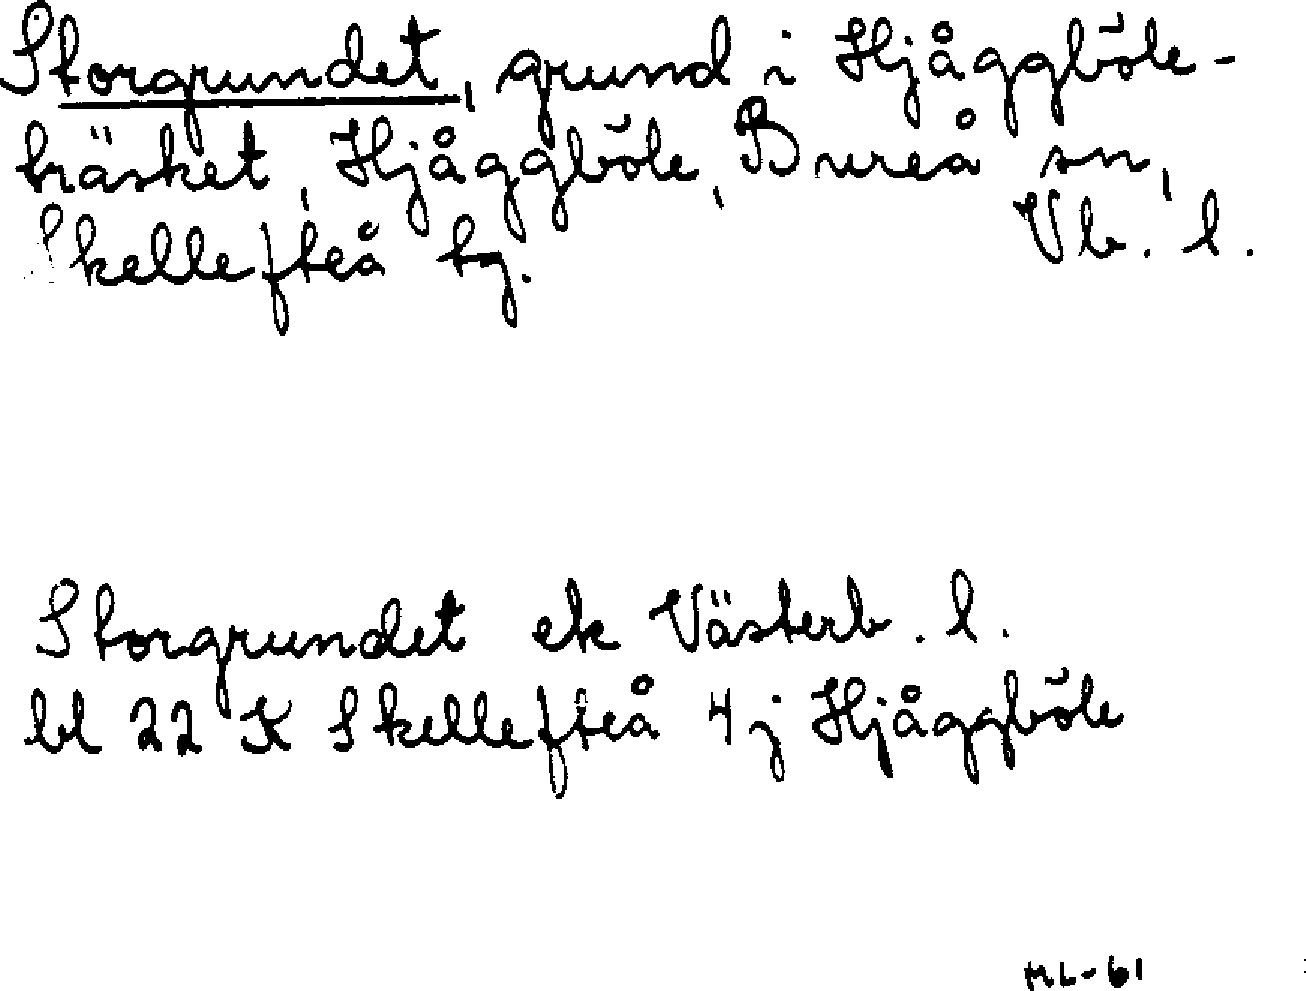 Storgrundet, grund i Hjåggböle-
träsket, Hjåggböle, Bureå sn,
Skellefteå tg. Vb. l.
Storgrundet ek Västerb. l.
bl 22 K Skellefteå 4 j Hjåggböle
ML-61